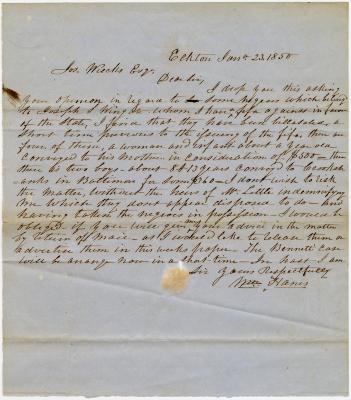 Elkton Jan 23. 1850
Jos. Wicks Esq.
Dear Sir,
I drop you this asking
your opinion in regard to some negroes which belong
to Joseph I whom I have fifa against in favor
of the State, I find that they have bill of sales, a
short term previous to the issuing of the fifa, there are
four of them, a woman and infant about a year old
conveyed to his Mother in consideration of $500 — then
there is two boys about 8 & 13 years conveyed to
in Baltimore for — I don't wish to risk
the matter, without the heirs of Mr. Little indemnifying
me which they don't appear disposed to do — and
having taken the negroes in possession — I would be
obliged if you will give me your advice in the matter
by return of mail — as I would like to release them or
advertise them in this weeks paper. The Bennett case
will be arranged now in a short time — In haste I am
Sir Yours Respectfully
Wm